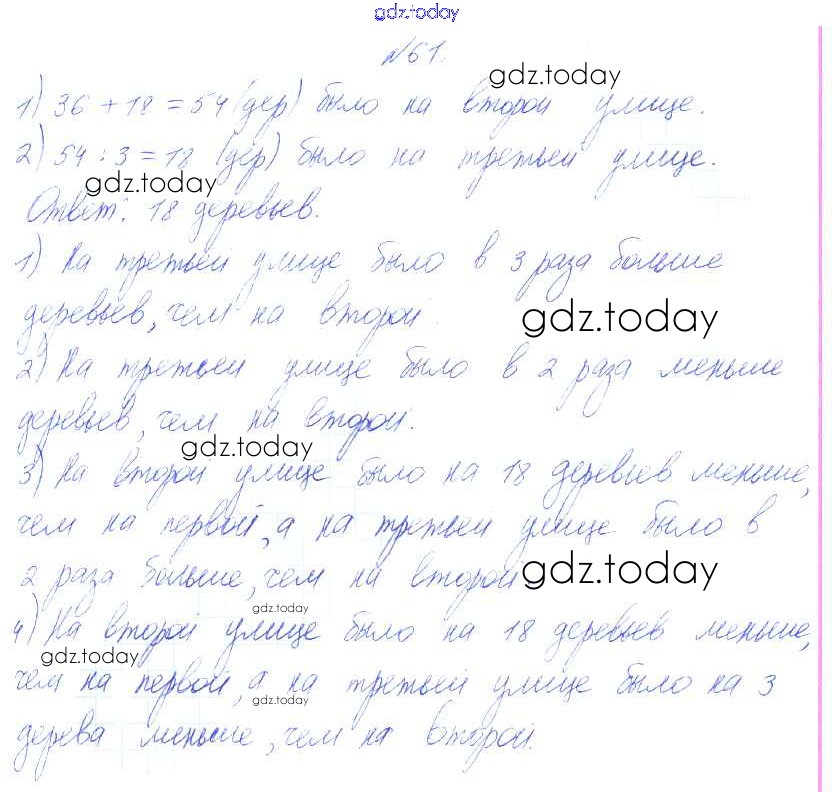 gdz.today
№61.
gdz.today
1) 36 + 18 = 54 (дер) было на второй улице.
2) 54 : 3 = 18 (дер) было на третьей улице.
gdz.today
Ответ: 18 деревьев.
1) На третьей улице было в 3 раза больше
деревьев, чем на второй.
gdz.today
2) На третьей улице было в 2 раза меньше
деревьев, чем на второй.
gdz.today
3) На второй улице было на 18 деревьев меньше,
чем на первой, а на третьей улице было в
2 раза больше, чем на второй
gdz.today
gdz.today
4) На второй улице было на 18 деревьев меньше,
gdz.today
чем на первой, а на третьей улице было на 3
gdz.today
дерева меньше, чем на второй.